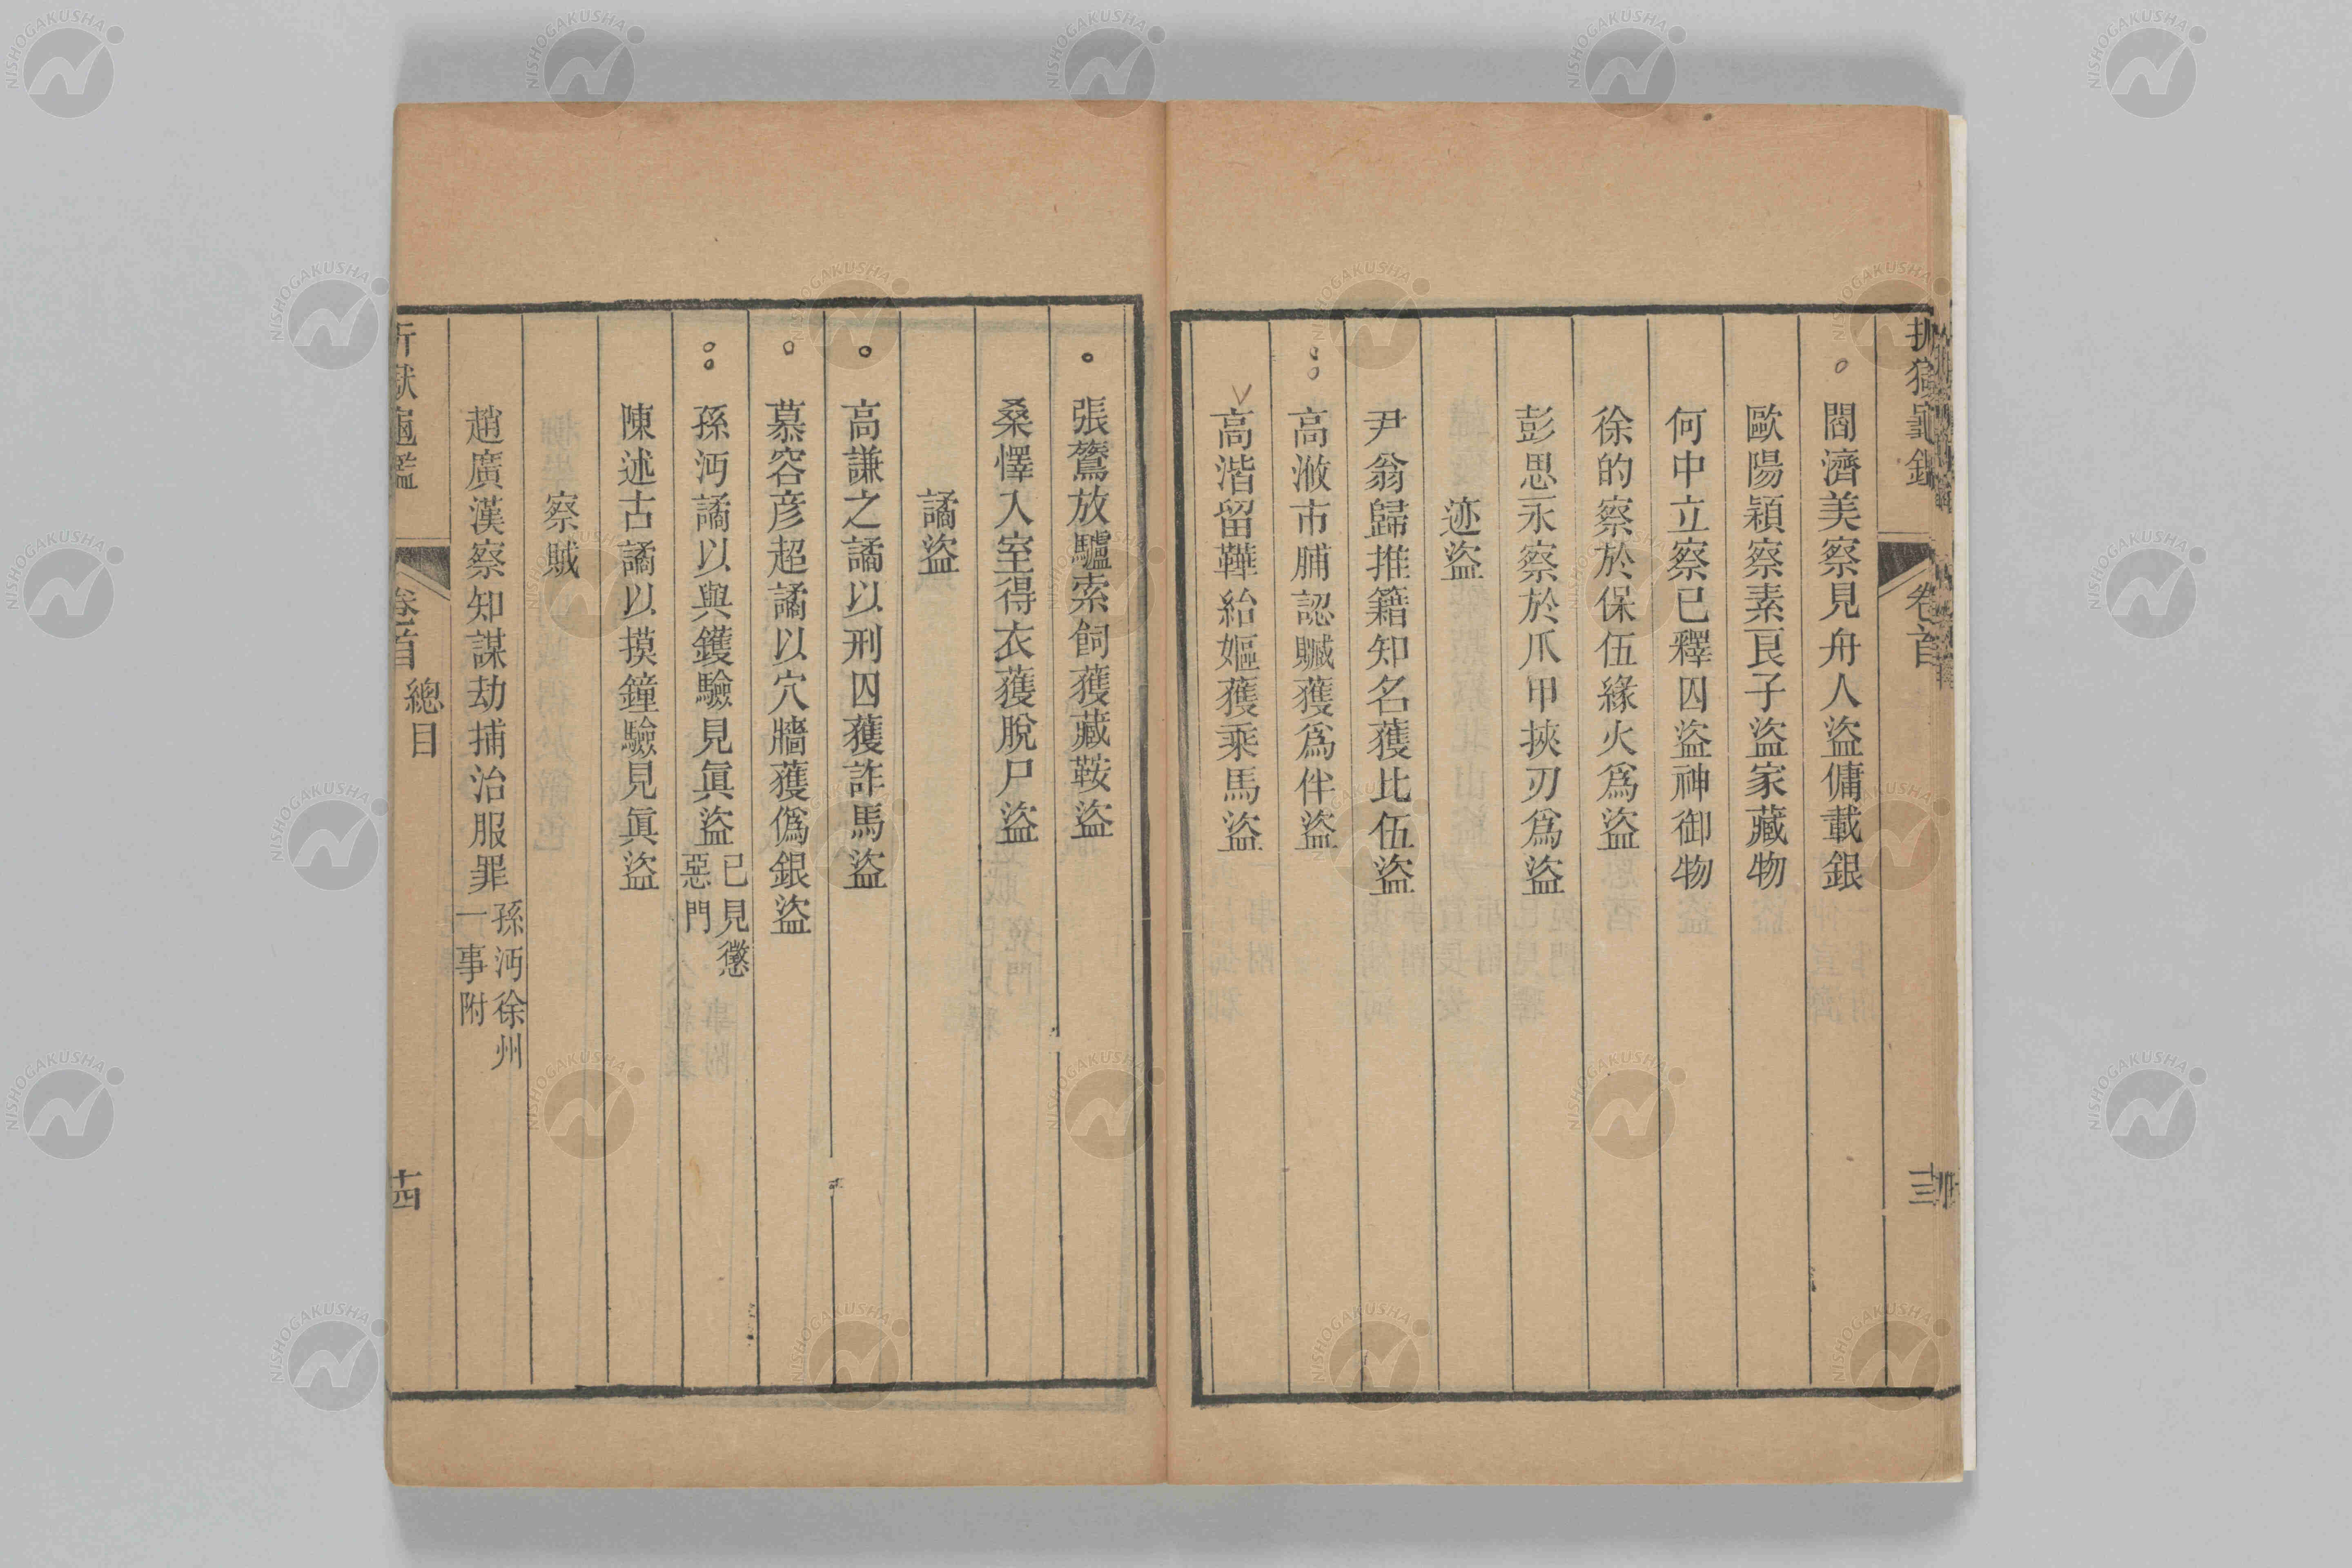 折獄龜鑑 卷首 十三
閻濟美察見舟人盜傭載銀
歐陽穎察素良子盜家藏物
何中立察已釋囚盜神御物
徐的察於保伍緣火爲盜
彭思永察於爪甲挾刃爲盜
迹盜
尹翁歸推籍知名獲比伍盜
高浟市脯認贓獲爲伴盜
高湝留鞾紿嫗獲乘馬盜
張鷟放驢索飼獲藏鞍盜
桑懌入室得衣獲脫尸盜
譎盜
高謙之譎以刑囚獲詐馬盜
慕容彥超譎以穴牆獲僞銀盜
孫沔譎以與鑊驗見眞盜已見懲惡門
陳述古譎以摸鐘驗見眞盜
察賊
趙廣漢察知謀劫捕治服罪孫沔徐州一事附
折獄龜鑑 卷首 總目 十四
NISHOGAKUSHA